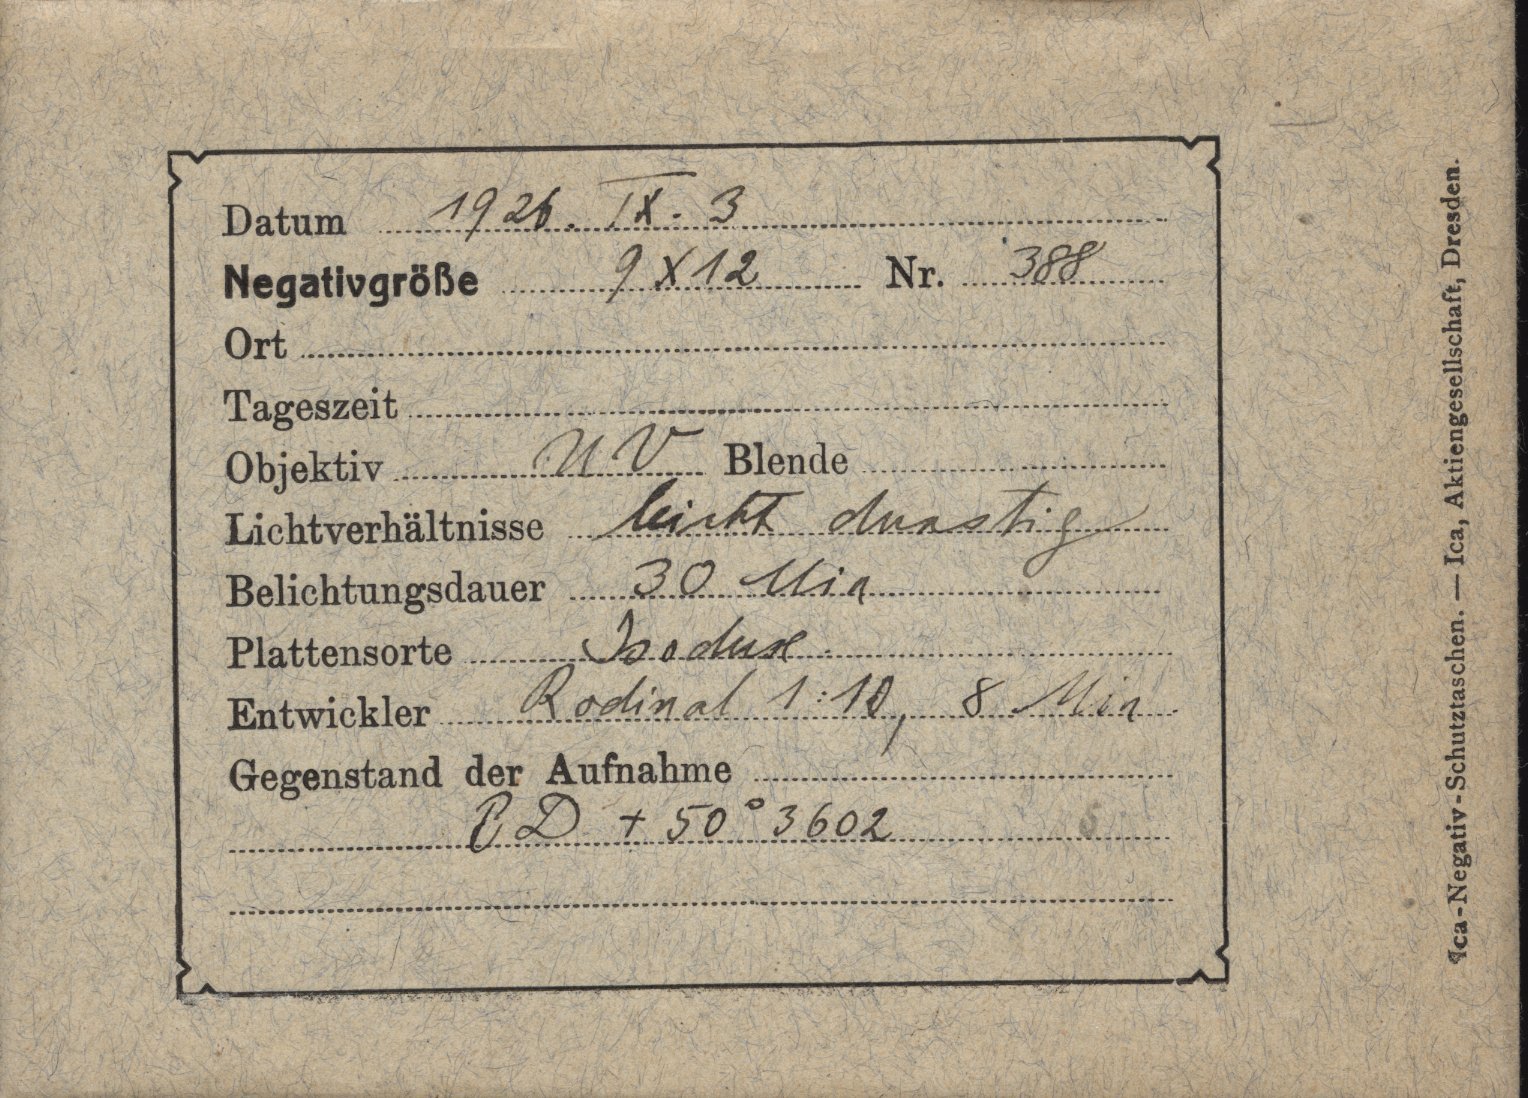 Datum 1926. IX. 3
Negativgröße 9 X 12 Nr. 388
Ort
Tageszeit
Objektiv UV Blende
Lichtverhältnisse leicht dunstig
Belichtungsdauer 30 Min
Plattensorte Isodux
Entwickler Rodinal 1:10, 8 Min.
Gegenstand der Aufnahme
BD + 50° 3602
Ica-Negativ-Schutztaschen. — Ica, Aktiengesellschaft, Dresden.